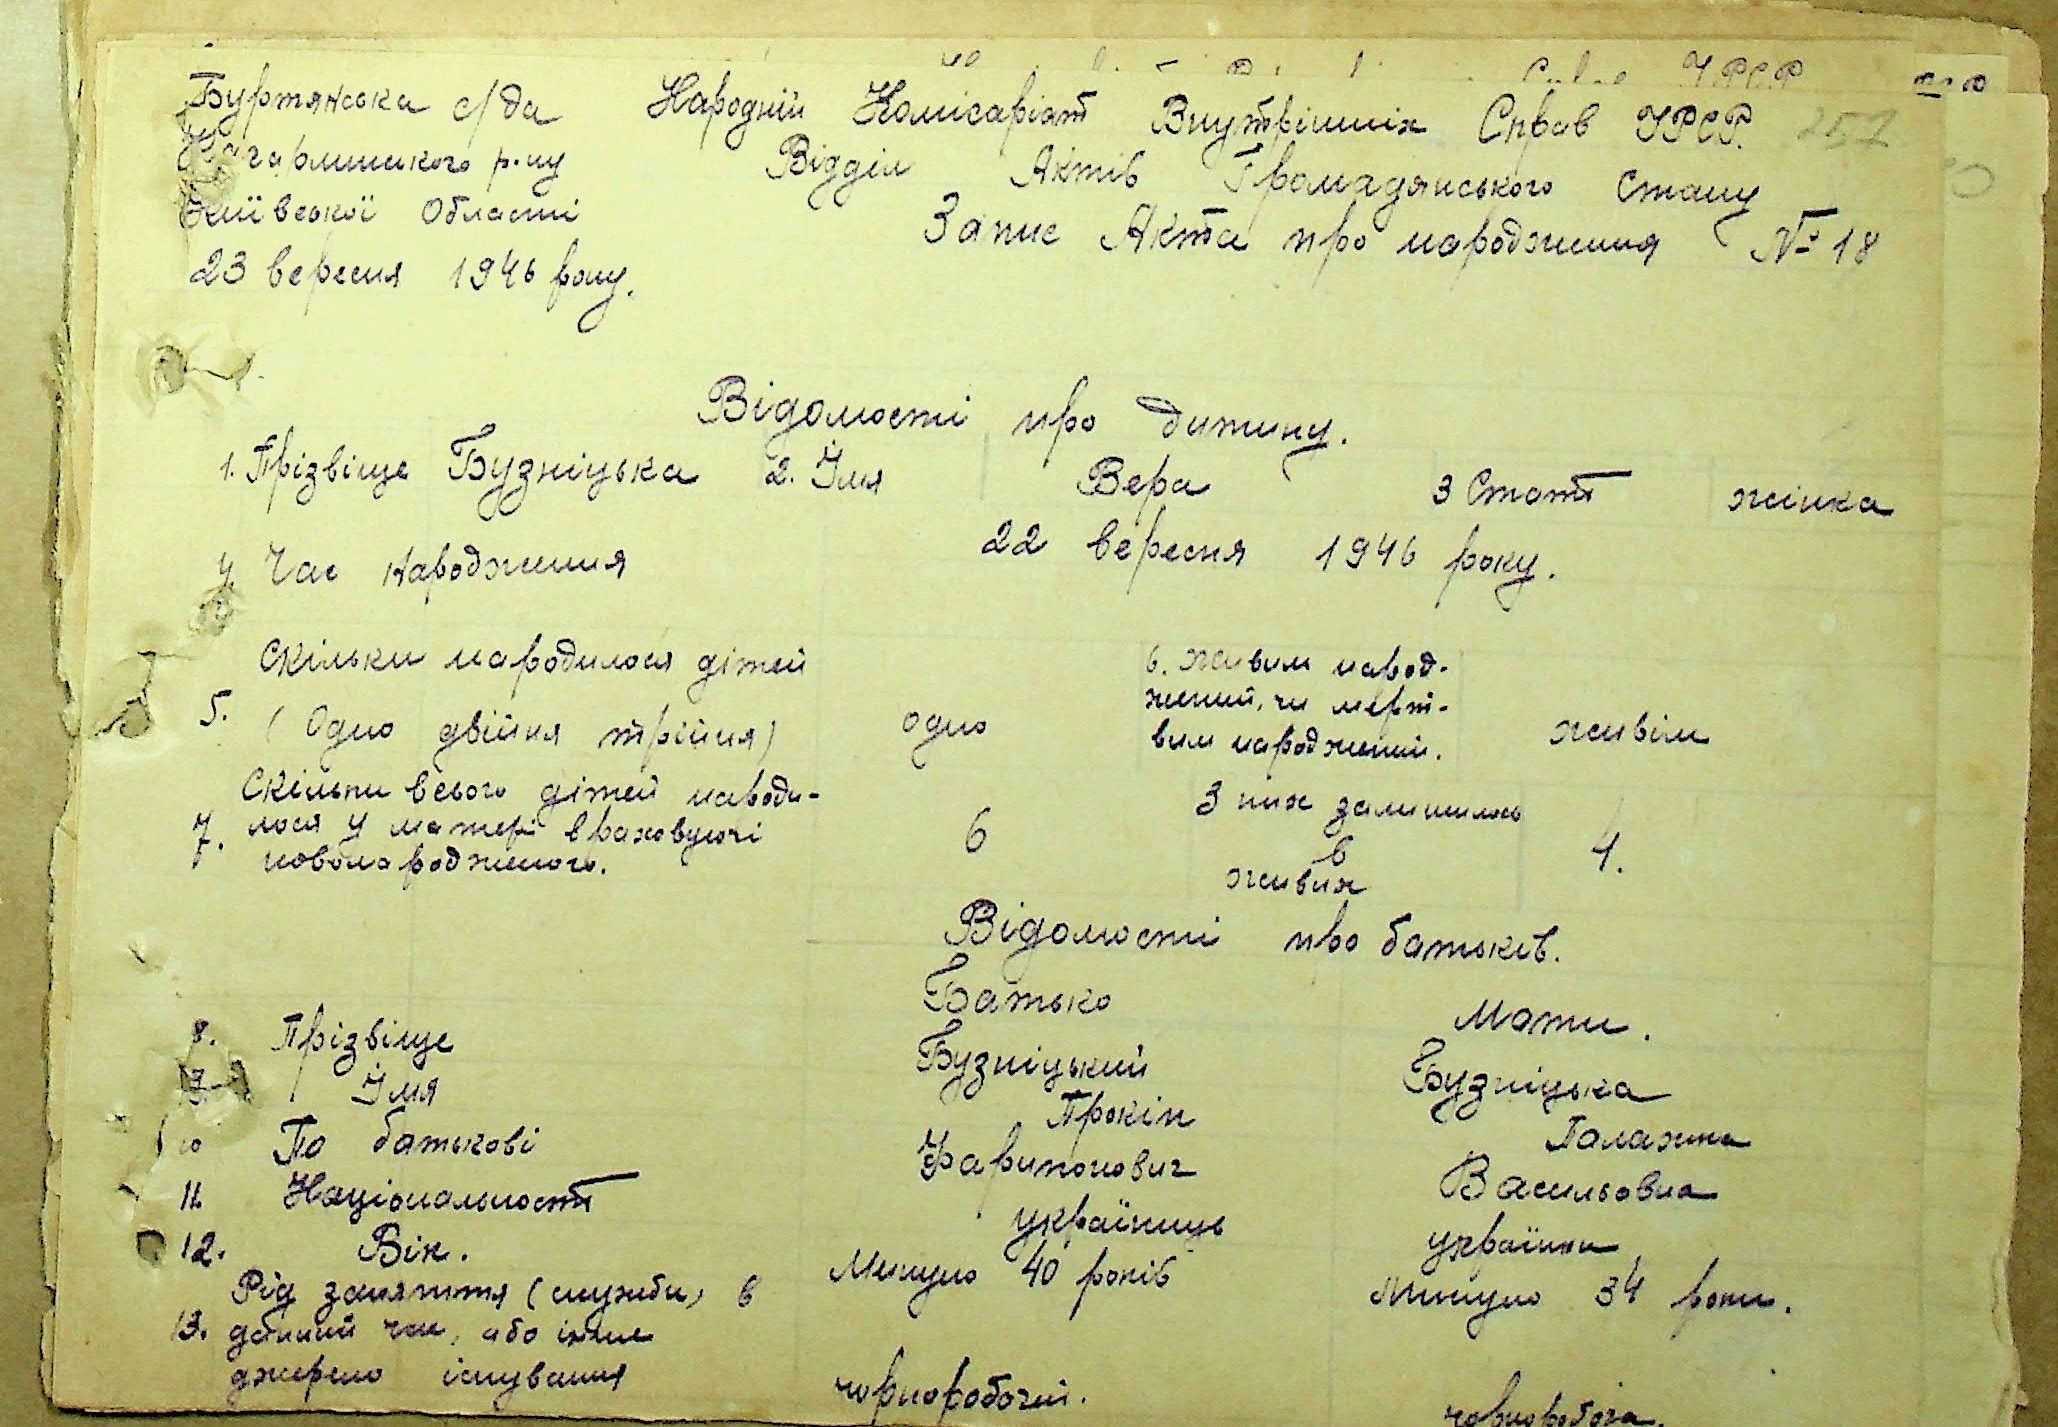 Буртянська с/да Народній Комісаріат Внутрішніх Справ УРСР. 257
Кагарлицького р-ну Відділ Актів Громадянського Стану
Київської Області Запис Акта про народження № 18
23 вересня 1946 року.
Відомості про дитину.
1. Прізвіще Бузніцька 2. Ймя Вера 3 Стать жінка
4 Час народження 22 вересня 1946 року.
Скільки народилося дітей
5. (Одно двійня трійня) одно
6. живим народ-
жений, чи мерт-
вим народжений. живім
Скільки всього дітей народи-
7. лося у матері враховуючі
новонародженого. 6
З них залишилось
в
живих 4.
Відомості про батьків.
Батько Мати.
8. Прізвіще Бузніцький Бузніцька
9. Ймя Прокіп Палажка
10 По батькові Харитонович Васильовна
11 Національність українець українка
12. Вік. Минуло 40 років Минуло 34 роки.
Рід заняття (служби, в
13. данний час, або інше
джерело існування чорноробочий. чорноробоча.